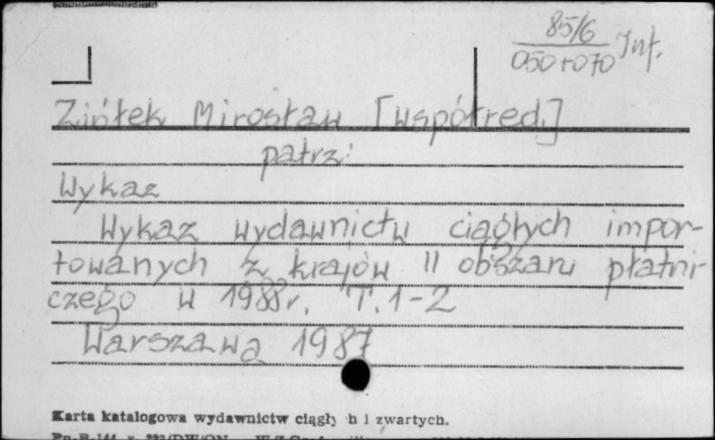 85/6
050+070 Inf.
Ziółek Mirosław [współred.]
patrz:
Wykaz
Wykaz wydawnictw ciągłych impor-
towanych z krajów II obszaru płatni-
czego w 1988 r. T. 1-2
Warszawa 1987
Karta katalogowa wydawnictw ciągły h i zwartych.